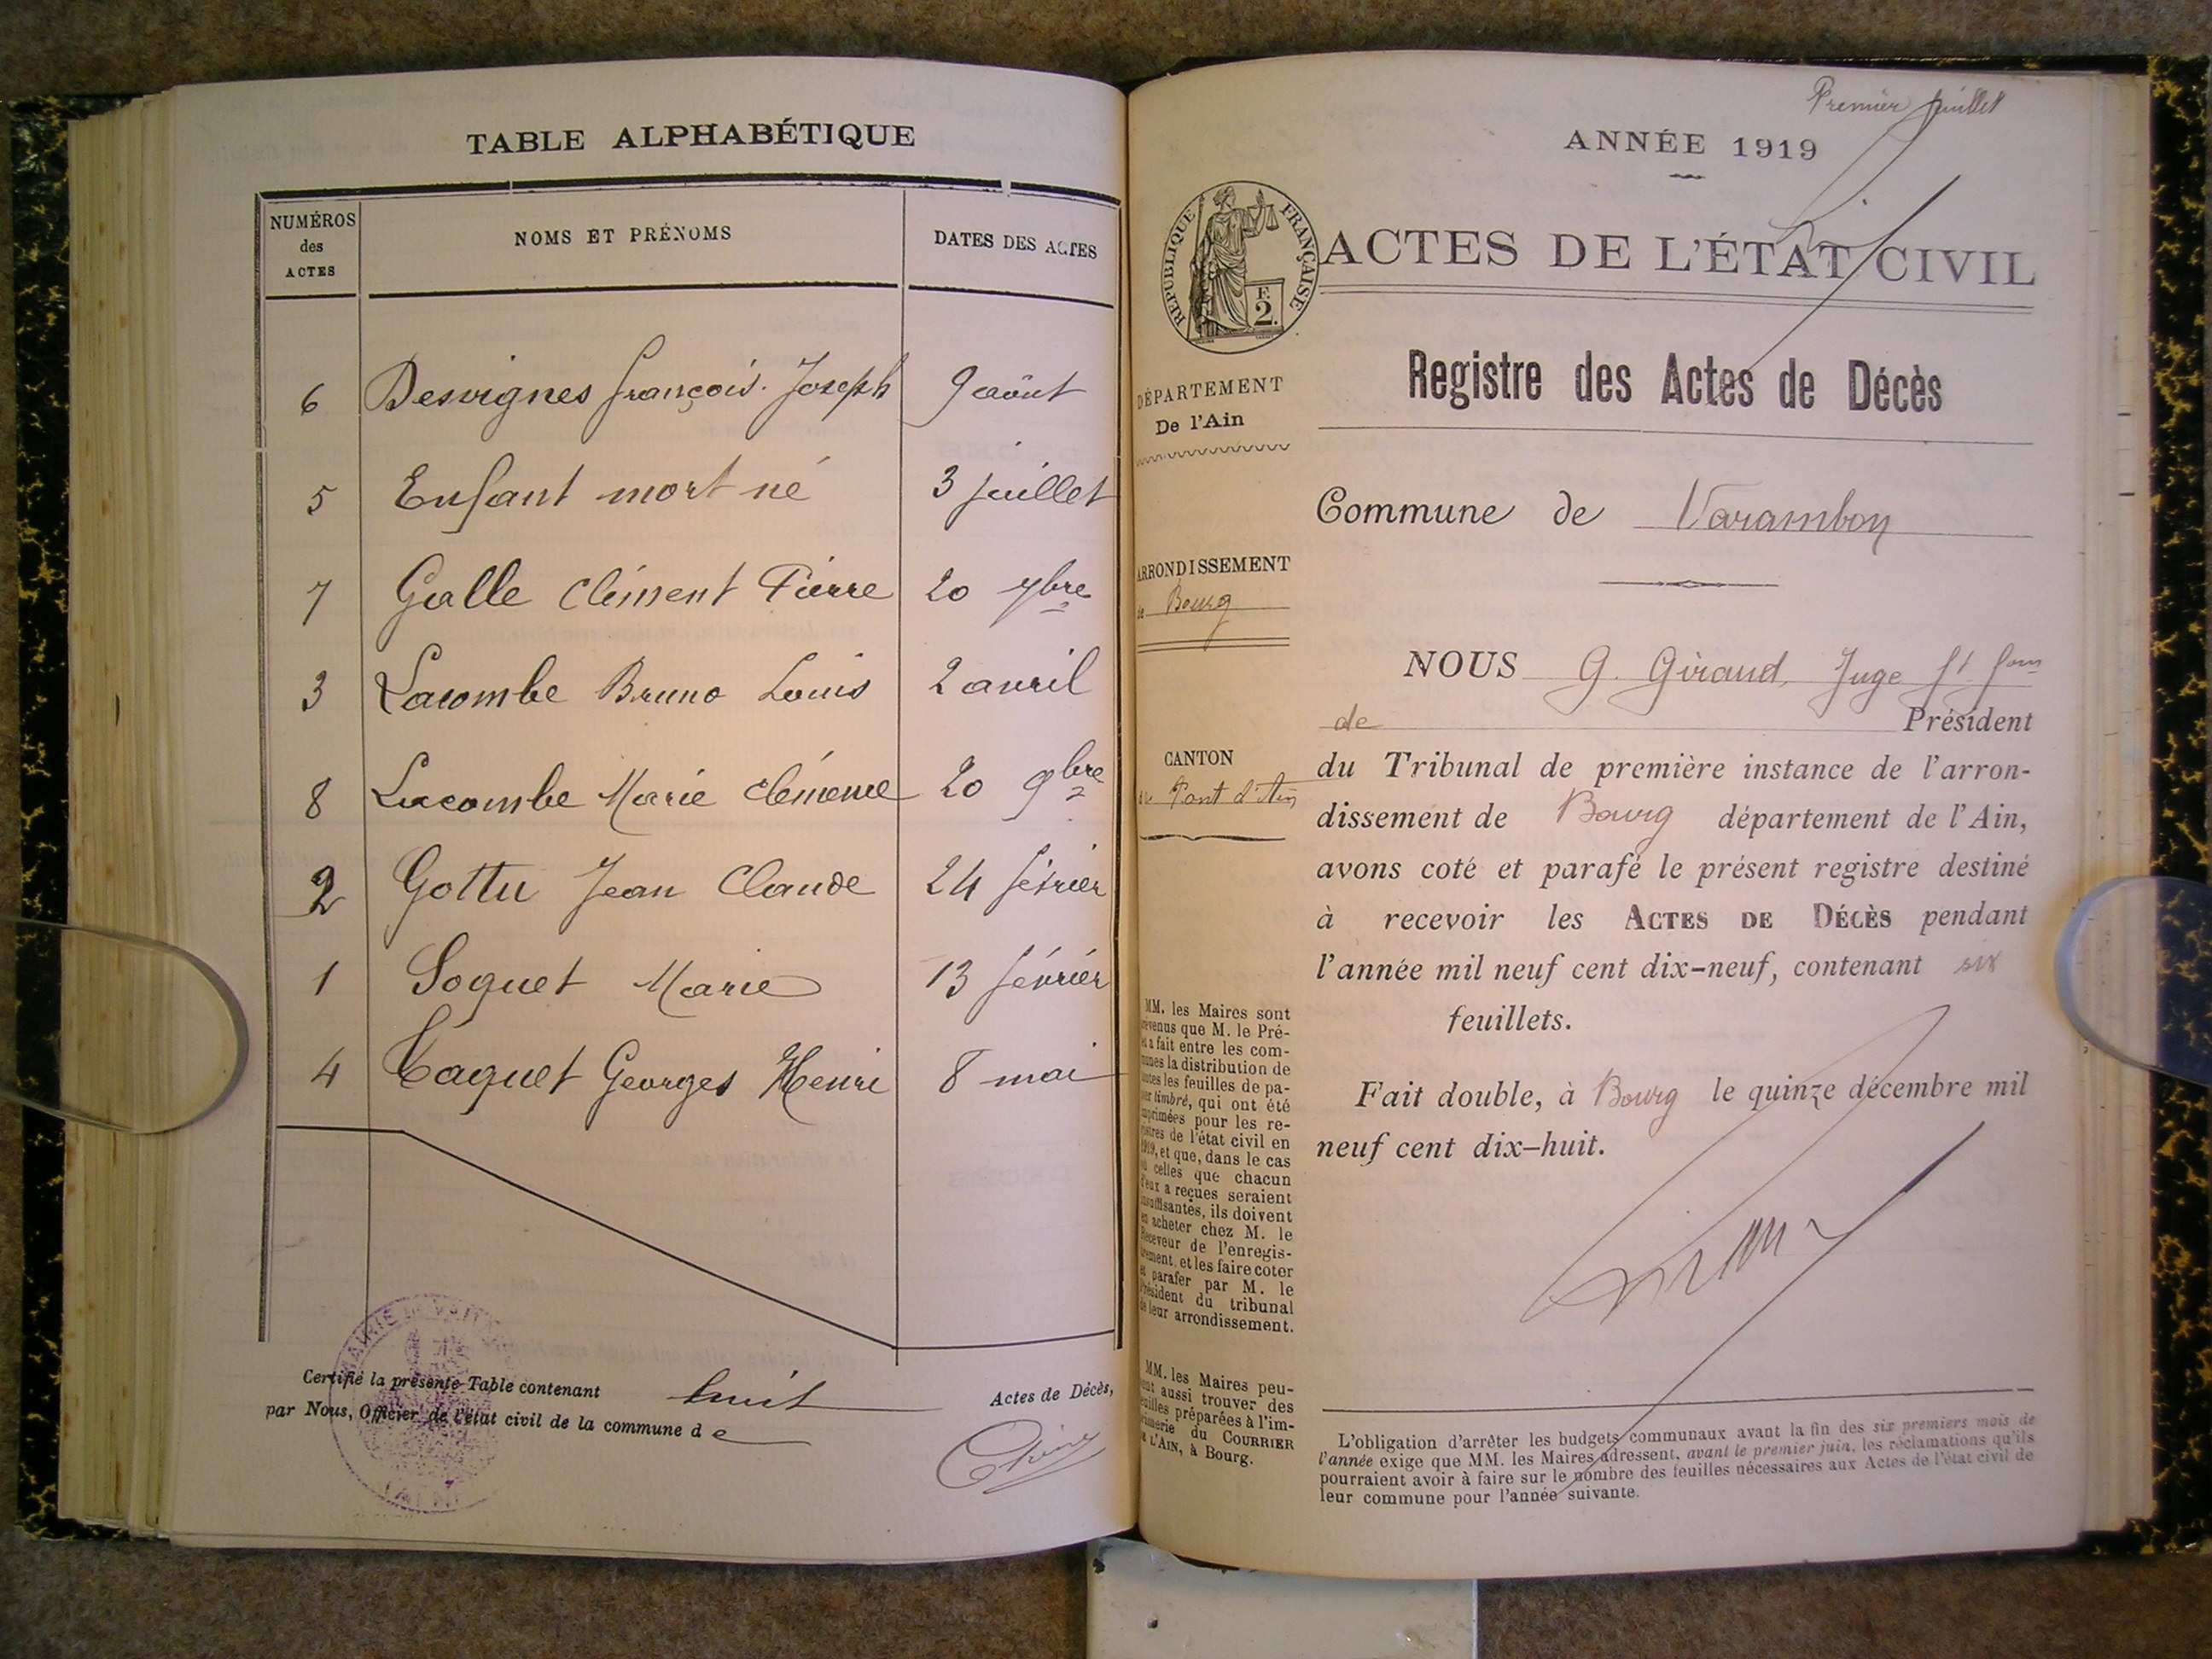 TABLE ALPHABÉTIQUE
NUMÉROS des ACTES
NOMS ET PRÉNOMS
DATES DES ACTES
6 Desvignes François Joseph 9 août
5 Enfant mort né 3 juillet
7 Galle Clément Pierre 20 7bre
3 Lacombe Bruno Louis 2 avril
8 Lacombe Marie Clémence 20 9bre
2 Gottu Jean Claude 24 février
1 Soquet Marie 13 février
4 Taquet Georges Henri 8 mai
Certifié la présente Table contenant huit Actes de Décès,
par Nous, Officier de l'état civil de la commune de
MAIRIE
Premier feuillet
ANNÉE 1919
RÉPUBLIQUE FRANÇAISE
F.
2.
ACTES DE L'ÉTAT CIVIL
Registre des Actes de Décès
DÉPARTEMENT
De l'Ain
Commune de Varambon
ARRONDISSEMENT
de Bourg
CANTON
Pont d'Ain
NOUS G. Giraud, Juge
de Président
du Tribunal de première instance de l'arron-
dissement de Bourg département de l'Ain,
avons coté et parafé le présent registre destiné
à recevoir les ACTES DE DÉCÈS pendant
l'année mil neuf cent dix-neuf, contenant six
feuillets.
Fait double, à Bourg le quinze décembre mil
neuf cent dix-huit.
MM. les Maires sont
prévenus que M. le Pré-
fet a fait entre les com-
munes la distribution de
toutes les feuilles de pa-
pier timbré, qui ont été
imprimées pour les re-
gistres de l'état civil en
1919, et que, dans le cas
où celles que chacun
d'eux a reçues seraient
insuffisantes, ils doivent
en acheter chez M. le
Receveur de l'enregis-
trement, et les faire coter
et parafer par M. le
Président du tribunal
de leur arrondissement.
MM. les Maires peu-
vent aussi trouver des
feuilles préparées à l'im-
primerie du COURRIER
DE L'AIN, à Bourg.
L'obligation d'arrêter les budgets communaux avant la fin des six premiers mois de
l'année exige que MM. les Maires adressent, avant le premier juin, les réclamations qu'ils
pourraient avoir à faire sur le nombre des feuilles nécessaires aux Actes de l'état civil de
leur commune pour l'année suivante.